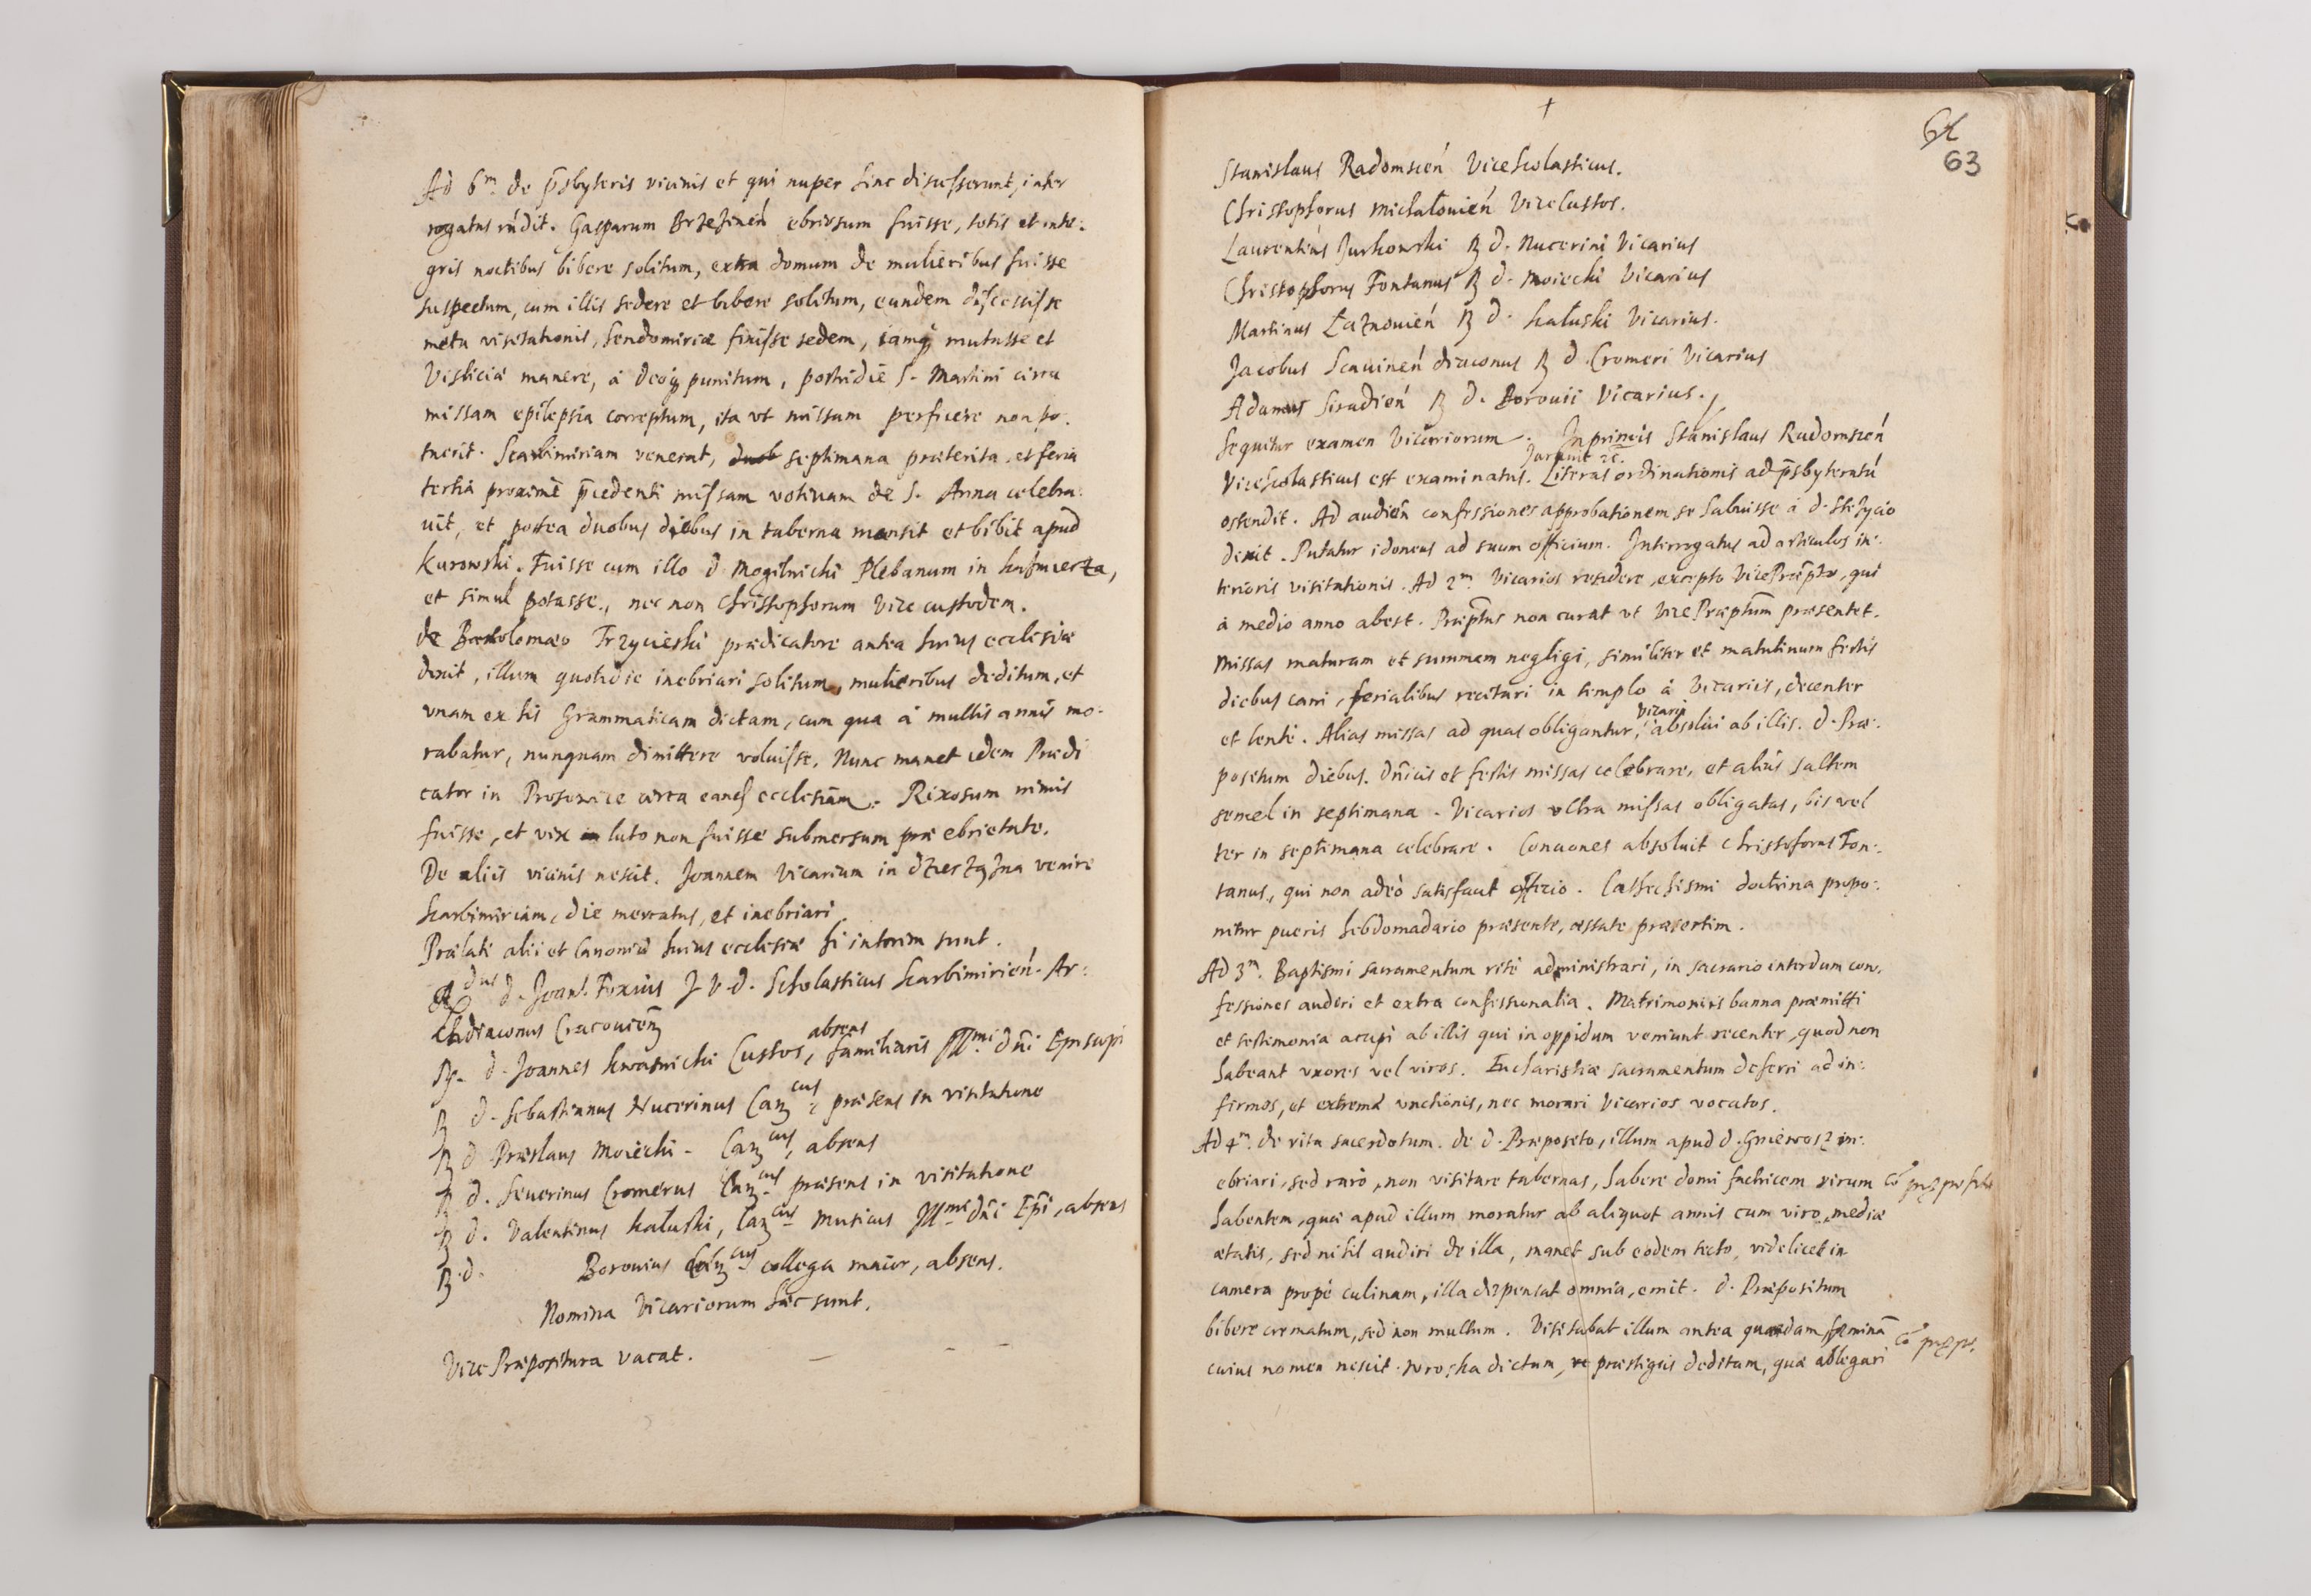 Ad 6m. de p̄sbyteris vicinis et qui nuper hinc discesserunt, inter
rogatus rn̄dit. Gasparum Brzezineń ebriosum fuisse, totis et inte:
gris noctibus bibere solitum, extra domum de mulieribus fuisse
suspectum, cum illis sedere et bibere solitum, eundem discessisse
metu visitationis, Sendomiriæ fixisse sedem, iamq̃ mutasse et
Visliciæ manere, à Deoq̃ punitum, postridie S. Martini circa
missam epilepsia correptum, ita vt missam perficere non po:
tuerit. Scarbimiriam venerat, septimana præterita, et feria
tertia proximè p̄cedenti missam votiuam de S. Anna celebra:
uit, et postea duobus diebus in taberna mansit et bibit apud
Kurowski. Fuisse cum illo d. Mogilnicki Plebanum in
et simul potasse, nec non Christophorum Vice custodem.
de Bartolomæo Trzycieski prædicatore antea huius ecclesiæ
dixit, illum quotidie inebriari solitum, mulieribus deditum, et
vnam ex his Grammaticam dictam, cum qua à multis annis mo:
rabatur, nunquam dimittere voluisse. Nunc manet idem Prædi
cator in Prosowice circa eand ecclesiam. Rixosum nimis
fuisse, et vix in luto non fuisse submersum præ ebrietate.
De aliis vicinis nescit. Joannem Vicarium in venire
Scarbimiriam, die mercatus, et inebriari
Prælati alii et Canonici huius ecclesiæ hi interim sunt.
dus d. Joan. Foxius J.V.d. Scholasticus Scarbimirień. Ar:
chdiaconus Cracouień
R. d. Joannes Kwasnicki Custos, absens familiaris Illmi dn̄i Episcopi
R d. Sebastianus Nucerinus Can cus præsens in visitatione
R d Præslaus Moiecki - Can cus, absens
R d. Seuerinus Cromerus Can cus præsens in visitatione
R d. Valentinus Kałuski, Can cus Musicus Illmi dn̄i Ep̄i, absens
R. d. Borouius Can cus collega maior, absens.
Nomina Vicariorum hæc sunt.
Vice Præpositura vacat.
†
61
63
Stanislaus Radomsień ViceScolasticus.
Christophorus Michałouień ViceCustos.
Laurentius Jurkowski R d. Nucerini Vicarius
Christophorus Fontanus R d. Moiecki Vicarius
Martinus Łaznouień R d. Kałuski Vicarius.
Jacobus Scauineń diaconus R d Cromeri Vicarius
Adamus Siradień R d. Borouii Vicarius.
Sequitur examen Vicariorum. Inprimis Stanislaus Radomsień
Jurauit &c.
ViceScolasticus est examinatus. Literas ordinationis ad p̄sbyteratū
ostendit. Ad audien̄ confessiones approbationem se habuisse à d.
dixit. Putatur idoneus ad suum officium. Interrogatus ad articulos in:
terioris visitationis. Ad 2m. Vicarios residere, excepto VicePræpto, qui
à medio anno abest. Præptus non curat vt VicePræptum præsentet.
Missas maturam et summam negligi, similiter et matutinum festis
diebus cani, ferialibus recitari in templo à Vicariis, decenter
et lentè. Alias missas ad quas obligantur, vicarii absolui ab illis. d. Præ:
positum diebus dn̄icis et festis missas celebrare, et aliàs saltem
semel in septimana. Vicarios vltra missas obligatas, bis vel
ter in septimana celebrare. Conciones absoluit Christoforus Fon:
tanus, qui non adeò satisfacit officio. Catechismi doctrina propo:
nitur pueris hebdomadario præsente, æstate præsertim.
Ad 3m. Baptismi sacramentum ritè administrari, in sacrario interdum con:
fessiones audiri et extra confessionalia. Matrimoniis banna præmitti
et testimonia accipi ab illis qui in oppidum veniunt recenter, quod non
habeant vxores vel viros. Eucharistiæ sacramentum deferri ad in:
firmos, et extremæ vnctionis, nec morari Vicarios vocatos.
Ad 4m. de vita sacerdotum. de d. Præposito, illum apud d. Gniewosz in:
ebriari, sed rarò, non visitare tabernas, habere domi factricem virum
habentem, quæ apud illum moratur ab aliquot annis cum viro, mediæ
ætatis, sed nihil audiri de illa, manet sub eodem tecto, videlicet in
camera propè culinam, illa dispensat omnia, emit. d. Præpositum
bibere crematum, sed non multum. Visitabat illum antea quædam fæmina
cuius nomen nescit. dictam, præstigiis deditam, quæ ablegari